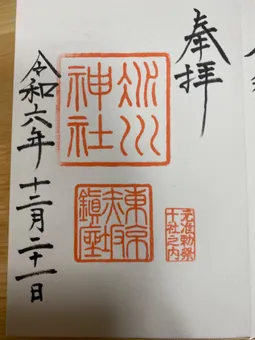 奉拝
氷川神社
東京赤坂鎮座
元准勅祭
十社之内
令和六年十二月二十一日